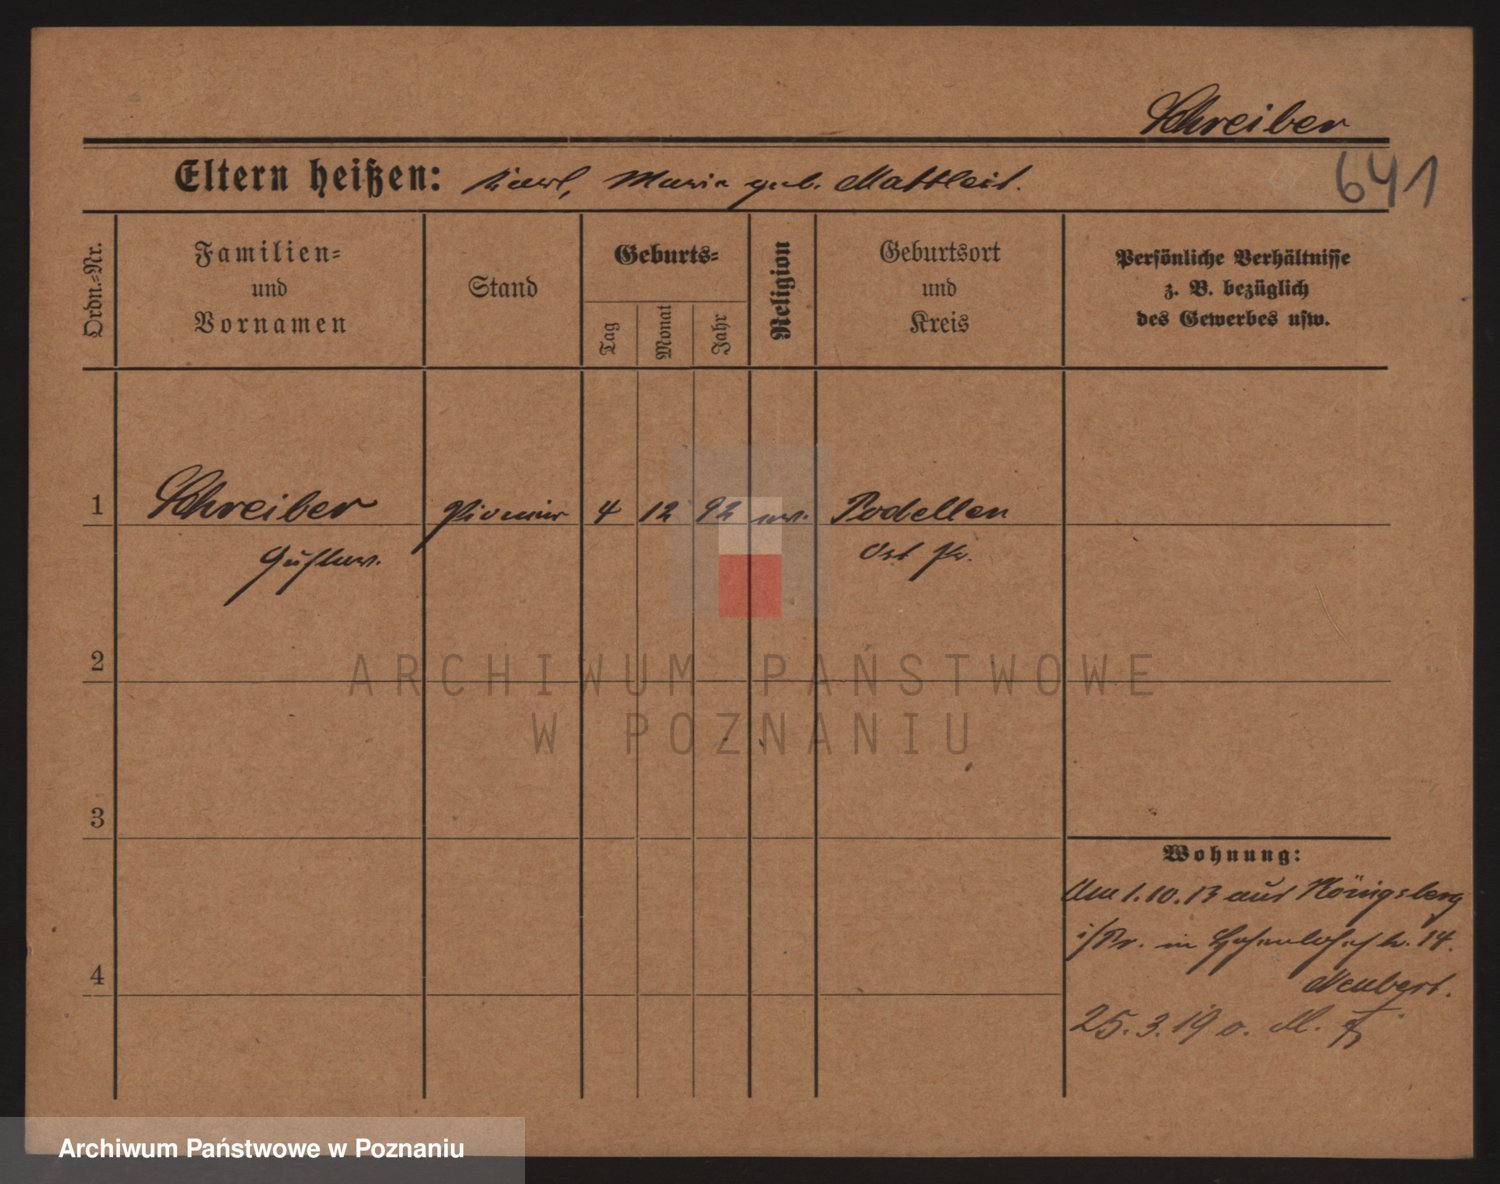 Schreiber
641
Eltern heißen: Karl, Maria geb. Mattleit.
Ordn.-Nr.
Familien-
und
Vornamen
Stand
Geburts-
Tag
Monat
Jahr
Religion
Geburtsort
und
Kreis
Persönliche Verhältnisse
z. B. bezüglich
des Gewerbes usw.
1 Schreiber Pionier 4 12 92 ev. Podellen
Gustav. Ost Pr.
2
3
4
ARCHIWUM PAŃSTWOWE
W POZNANIU
Wohnung:
Am 1.10.13 aus Königsberg
i/Pr. in 14.
Neubert.
25.3.19 o. M.
Archiwum Państwowe w Poznaniu